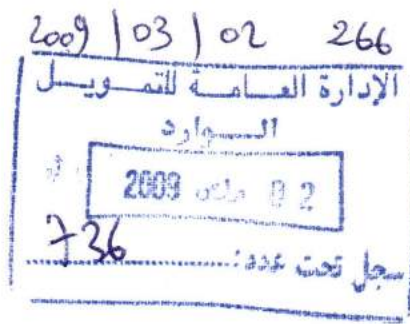 2009 / 03 / 02 266
الإدارة العامة للتمويل
الوارد
02 مارس 2009
736
سجل تحت عدد: